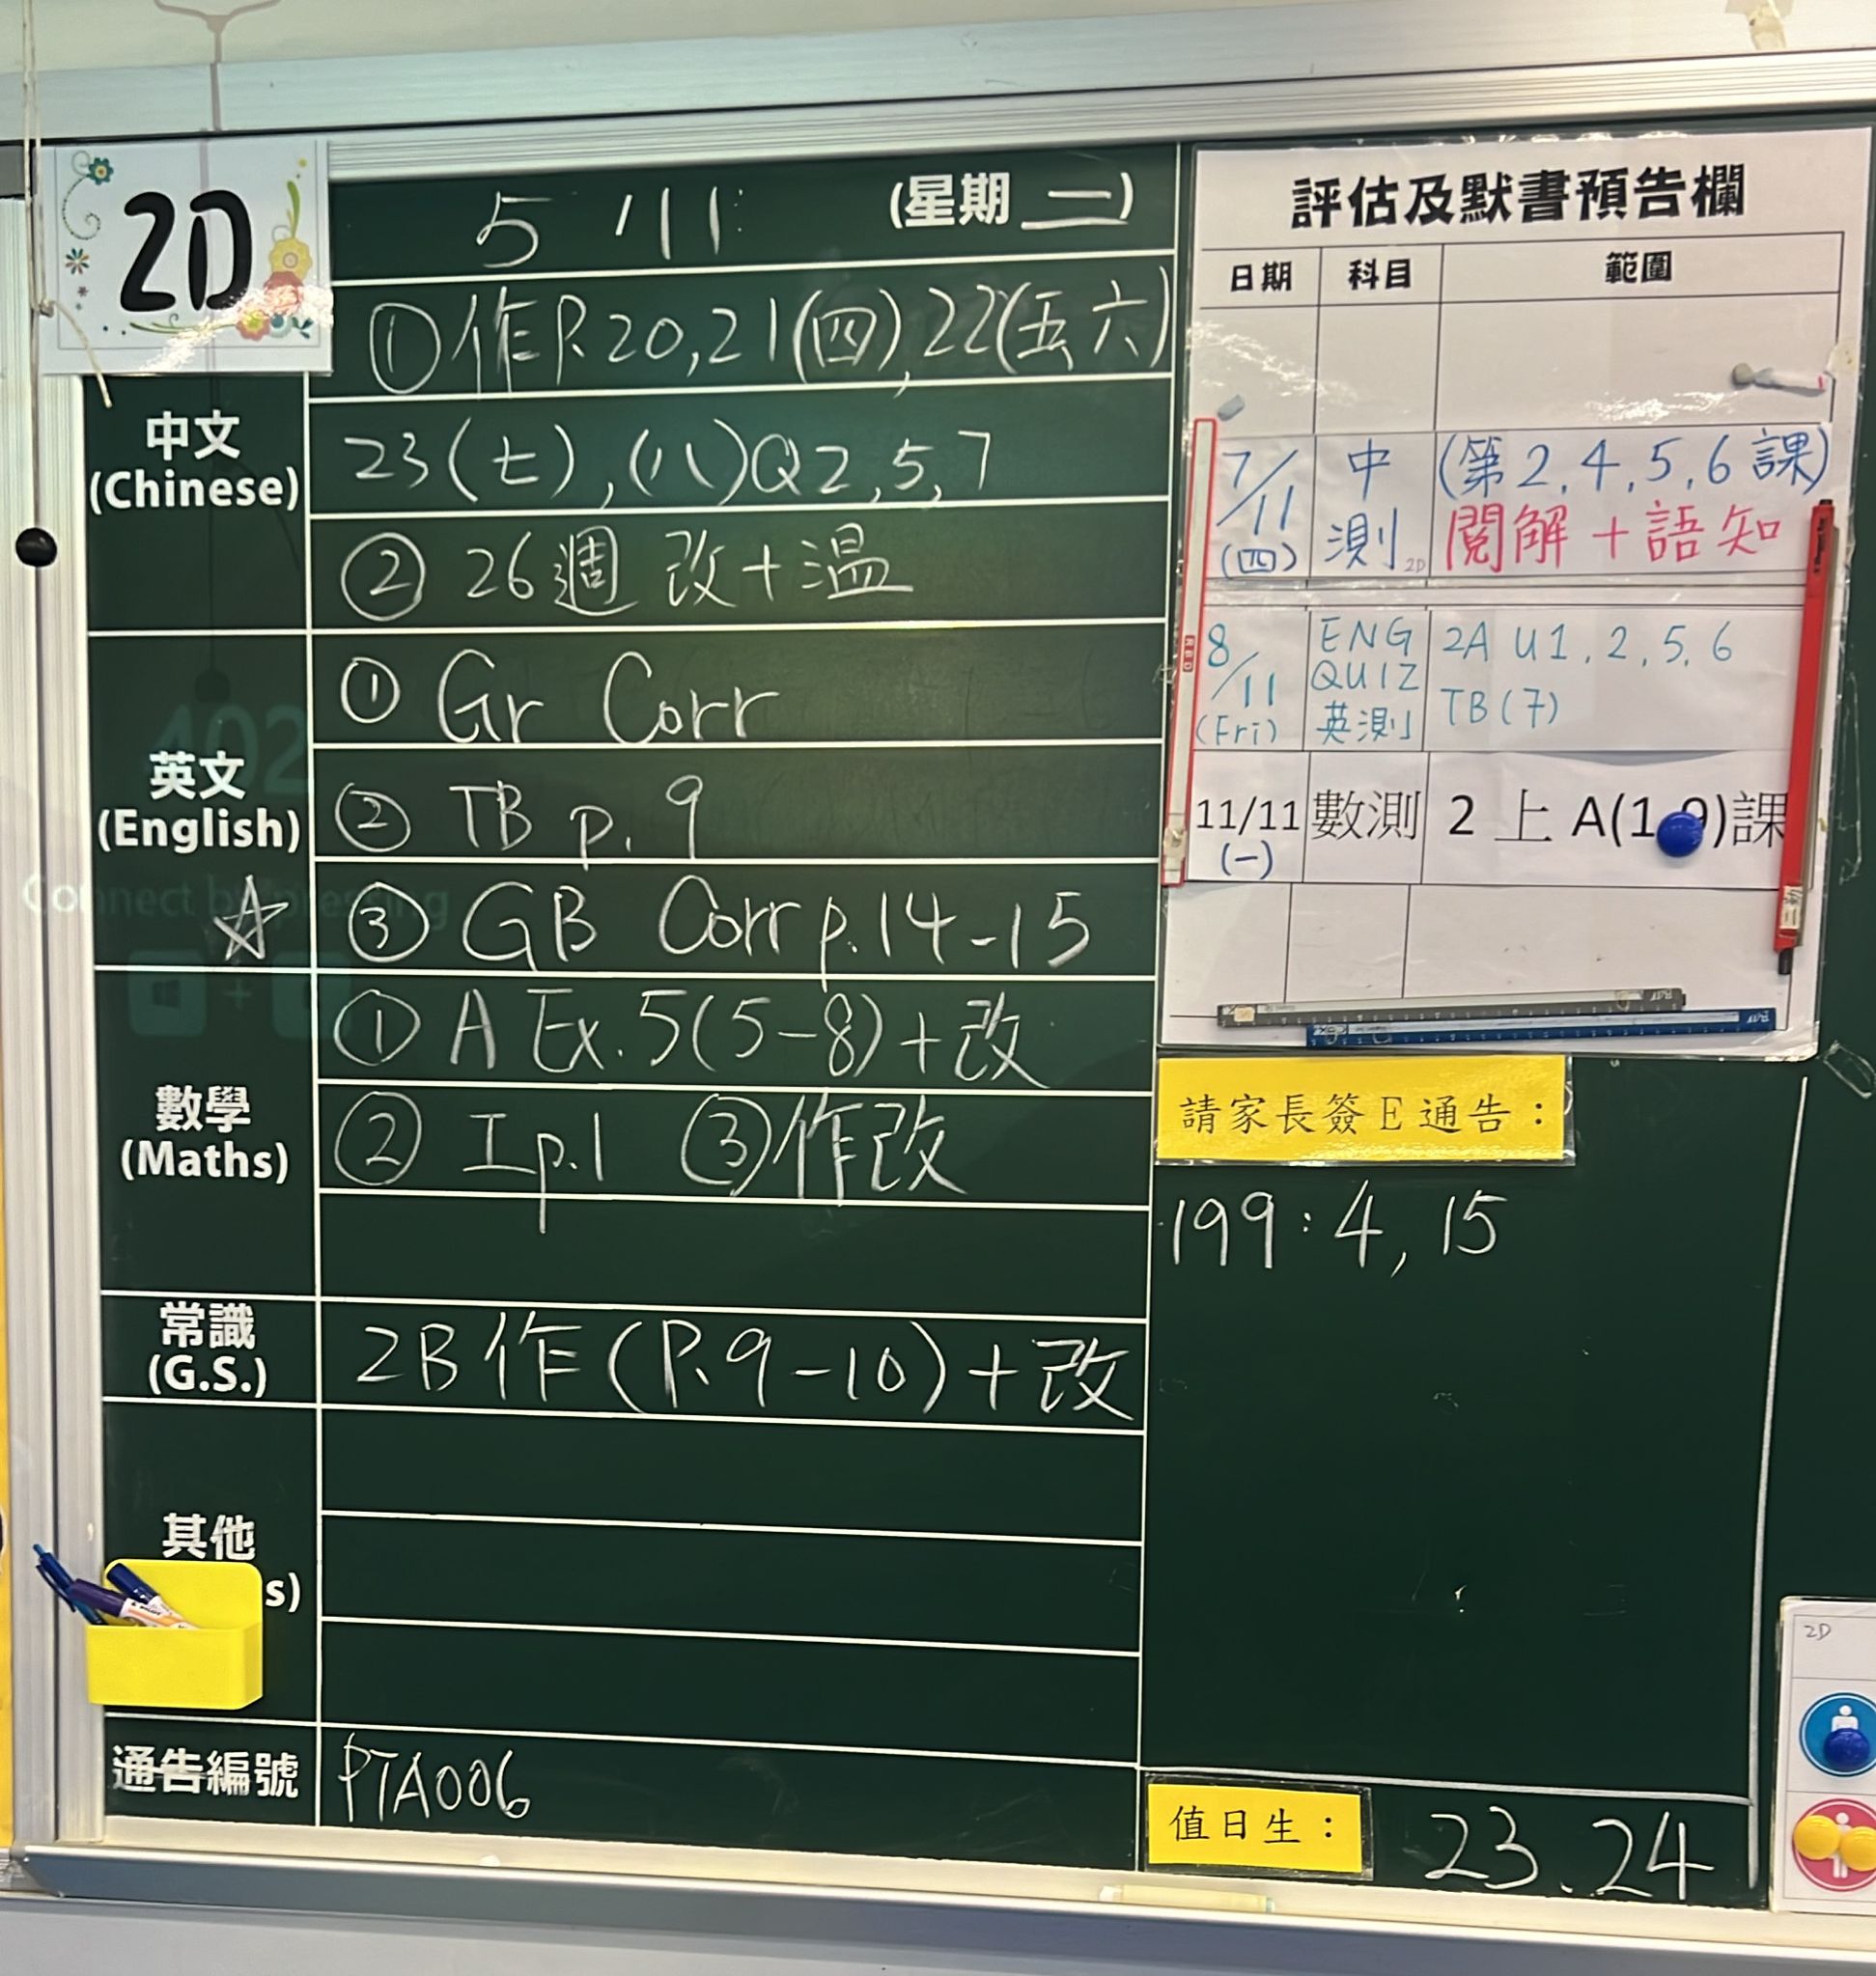 2D
5 / 11 (星期 二)
①作P.20,21(四),22(五,六)
中文
(Chinese)
23(七),(八)Q2,5,7
② 26週 改+温
英文
(English)
① Gr Corr
② TB p. 9
☆ ③ GB Corr p.14-15
數學
(Maths)
① A Ex.5(5-8)+改
② I p.1 ③作改
常識
(G.S.)
2B作(P.9-10)+改
其他
s)
通告編號
PTA006
評估及默書預告欄
日期 科目 範圍
7/11 (四) 中測 2D (第2,4,5,6課)
閱解+語知
8/11 (Fri) ENG QUIZ 英測 2A U1,2,5,6
TB(7)
11/11 (一) 數測 2 上 A(1 9)課
請家長簽E通告：
199:4,15
值日生：
23.24
2D